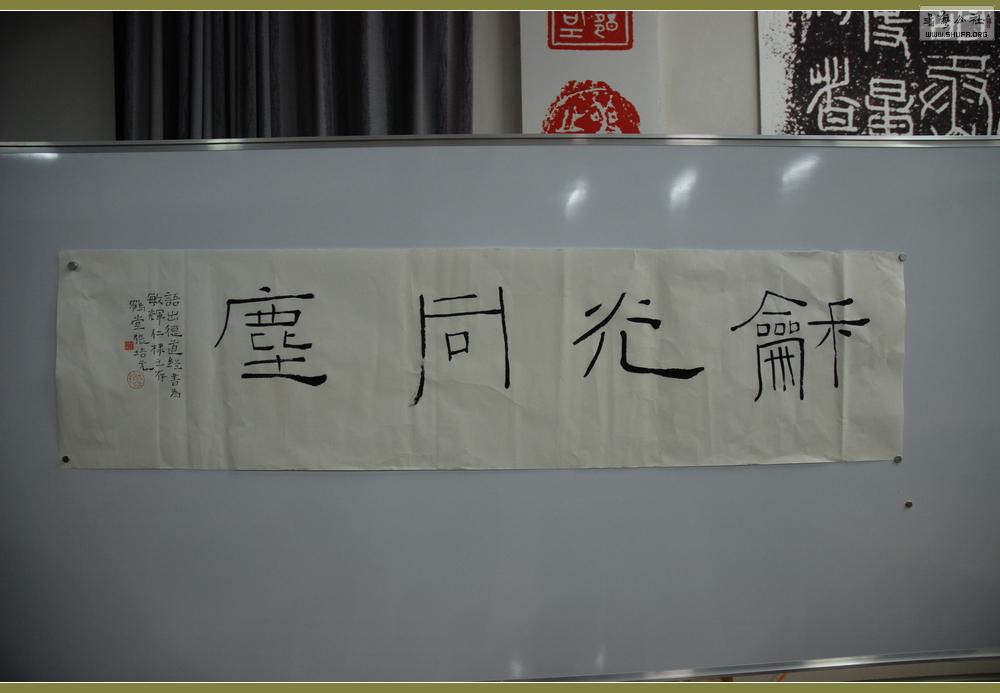 龢光同塵
語出德道經書為
敏輝仁棣之存
鶴堂張培元
書法公社
WWW.SHUFA.ORG